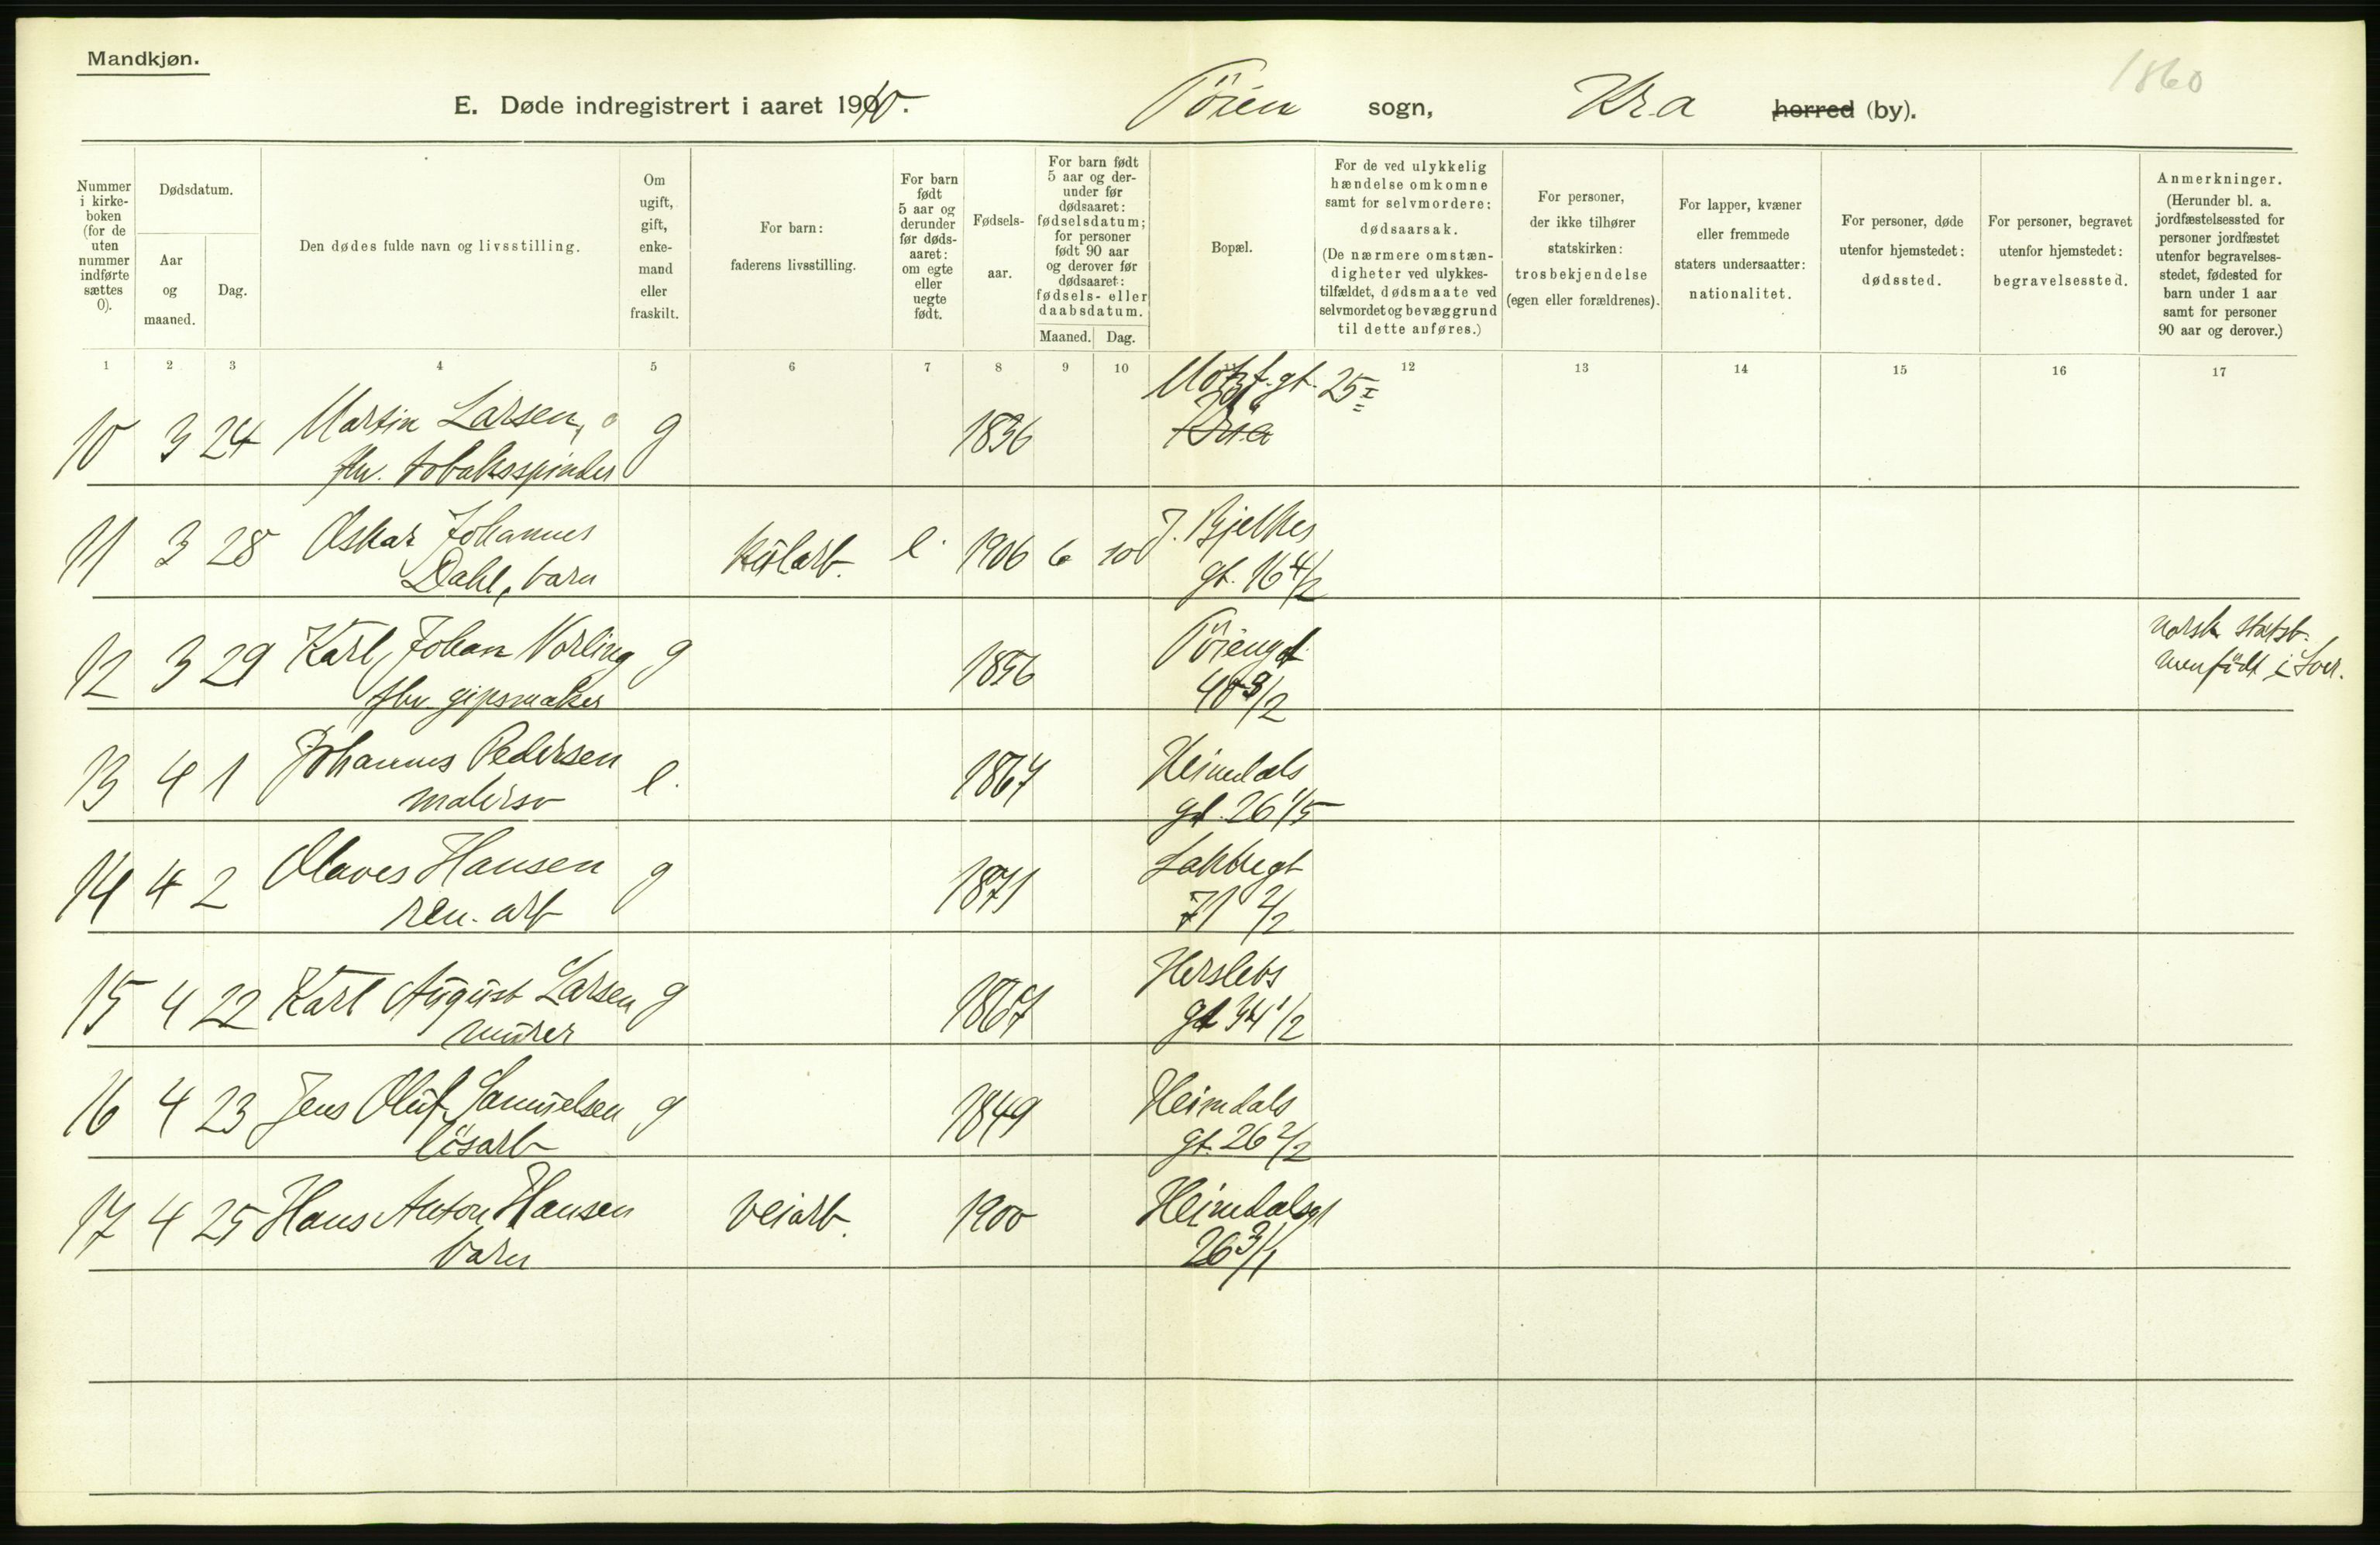 Mandkjøn.
1860
E. Døde indregistrert i aaret 1910. Töien sogn, Kr.a herred (by).
Nummer i kirke-boken (for de uten nummer indførte sættes 0).
Dødsdatum.
Aar og maaned.
Dag.
Den dødes fulde navn og livsstilling.
Om ugift, gift, enke-mand eller fraskilt.
For barn: faderens livsstilling.
For barn født 5 aar og derunder før døds-aaret: om egte eller uegte født.
Fødsels-aar.
For barn født 5 aar og der-under før dødsaaret: fødselsdatum; for personer født 90 aar og derover før dødsaaret: fødsels- eller daabsdatum.
Maaned.
Dag.
Bopæl.
For de ved ulykkelig hændelse omkomne samt for selvmordere: dødsaarsak. (De nærmere omstæn-digheter ved ulykkes-tilfældet, dødsmaate ved selvmordet og bevæggrund til dette anføres.)
For personer, der ikke tilhører statskirken: trosbekjendelse (egen eller forældrenes).
For lapper, kvæner eller fremmede staters undersaatter: nationalitet.
For personer, døde utenfor hjemstedet: dødssted.
For personer, begravet utenfor hjemstedet: begravelsessted.
Anmerkninger. (Herunder bl. a. jordfæstelsessted for personer jordfæstet utenfor begravelses-stedet, fødested for barn under 1 aar samt for personer 90 aar og derover.)
1 2 3 4 5 6 7 8 9 10 12 13 14 15 16 17
10 3 24 Martin Larsen, g 1836 gt. 25 I
fhv. tobaksspinder Kra
11 3 28 Oskar Johannes e. 1906 6 10 J. Bjelkes
Dahl, barn gt. 16 4/2
12 3 29 Karl Johan Norling g 1856 Töiengt norsk statsb.
fhv. gipsmaker 40 3/2 men födt i Sver.
13 4 1 Johannes Pedersen e. 1867 Heimdals
malersv gt. 26 1/5
14 4 2 Olaves Hansen g 1871 Lakkegt
ren. arb 71 2/2
15 4 22 Karl August Larsen g 1867 Herslebs
murer gt 34 1/2
16 4 23 Jens Oluf Samuelsen g 1849 Heimdals
lösarb gt. 26 2/2
17 4 25 Hans Anton Hansen veiarb. 1900 Heimdalsgt
barn 26 3/1